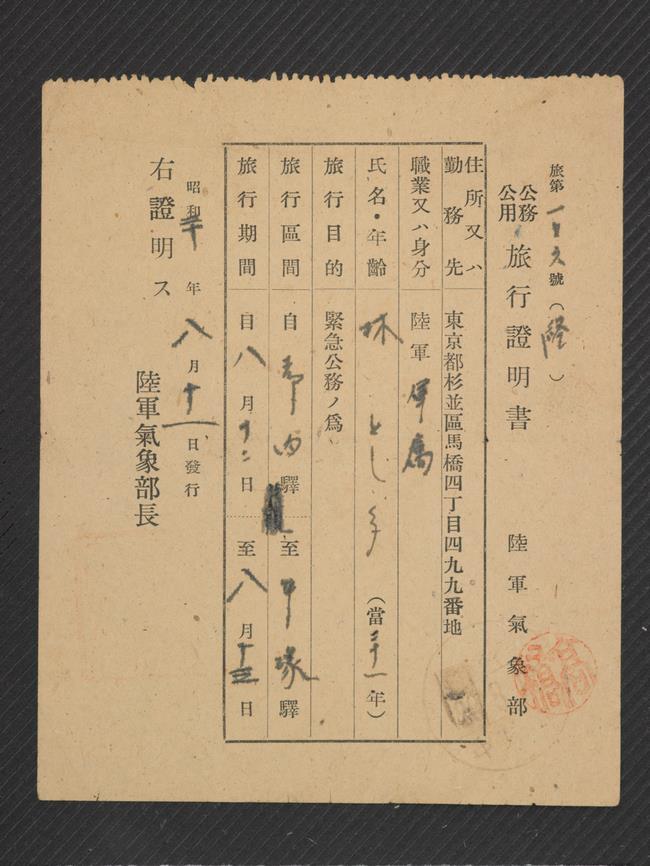 旅第一一九號(経)
公務
公用
旅行證明書 陸軍氣象部
住所又ハ
勤務先 東京都杉並區馬橋四丁目四九九番地
職業又ハ身分 陸軍 軍属
氏名・年齡 林 とし子 (當二十一年)
旅行目的 緊急公務ノ爲
旅行區間 自 都内 驛 至 平塚 驛
旅行期間 自 八月十二日 至 八月十三日
右證明ス
昭和二十年八月十一日發行
陸軍氣象部長